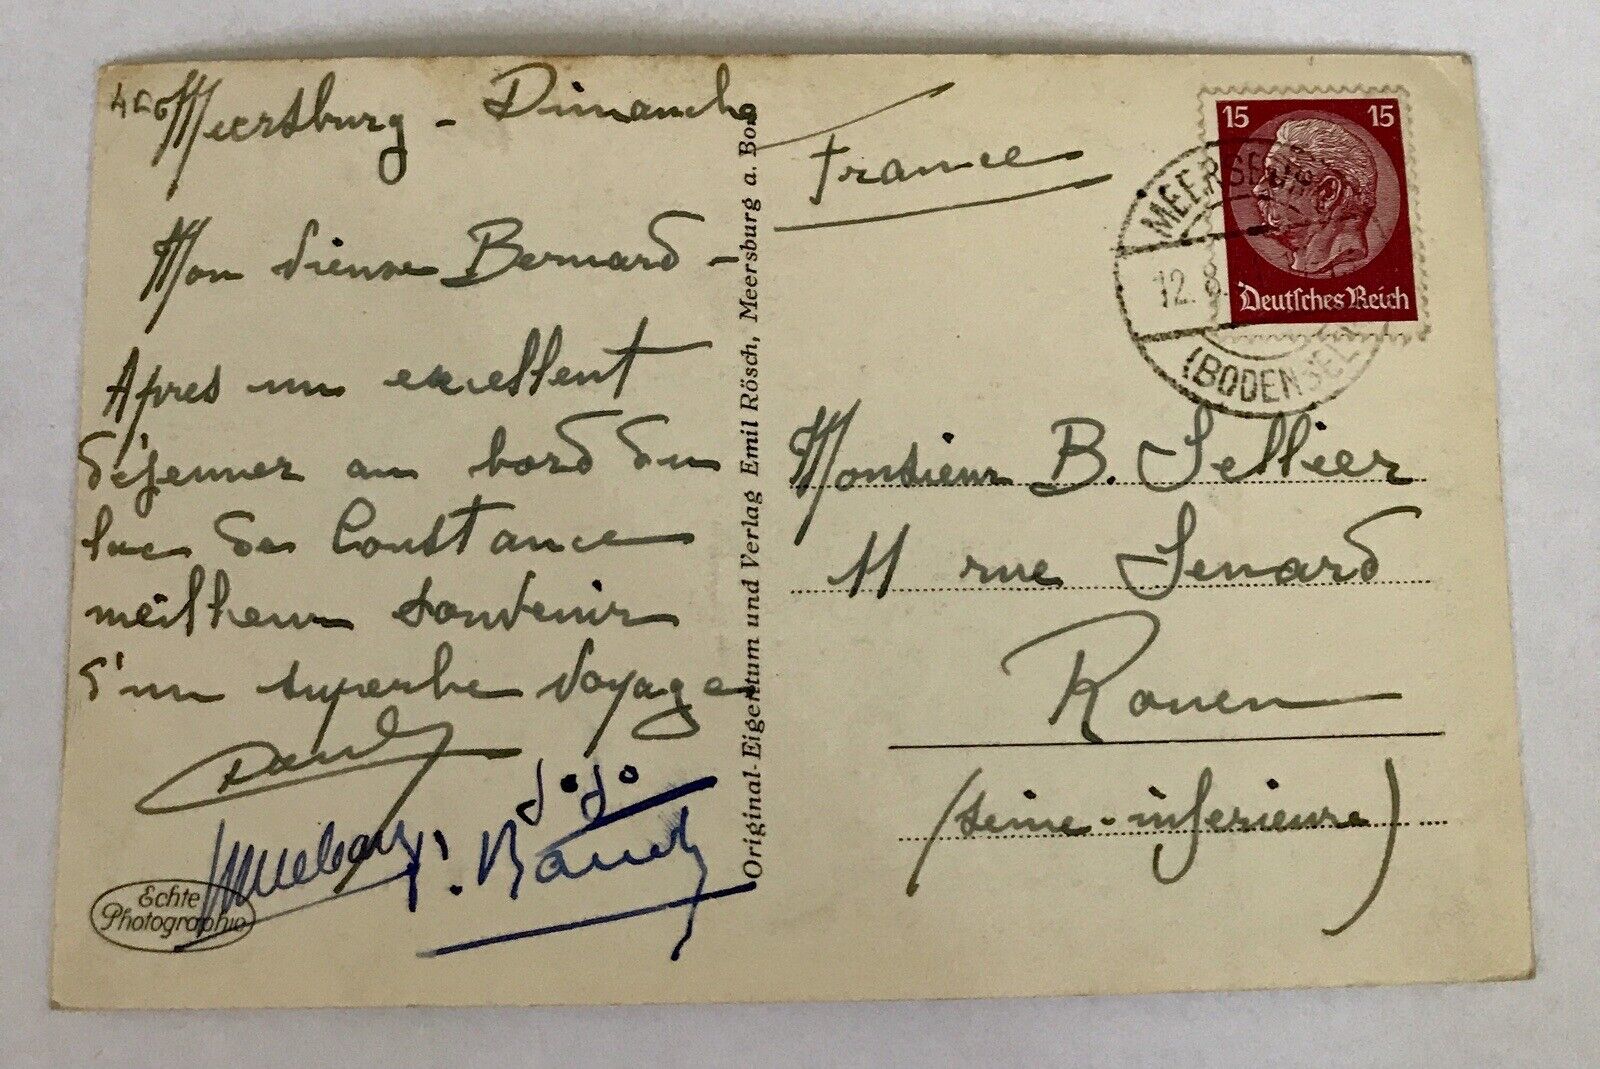 Meersburg - Dimanche
Mon vieux Bernard -
Apres un excellent
déjeuner au bord du
lac de Constance
meilheur souvenir
d'un superbe voyage
Echte
Photographie
Original-Eigentum und Verlag Emil Rösch, Meersburg a. Bod.
France
15 15
Deutsches Reich
MEERSBURG
12. 8.
(BODENSEE)
Monsieur B. Sellier
11 rue Senard
Rouen
(Seine-inferieure)